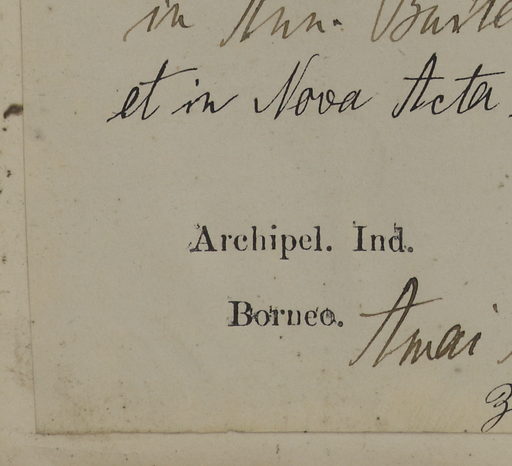 in Ann.
et in Nova Acta
Archipel. Ind.
Borneo. Amai